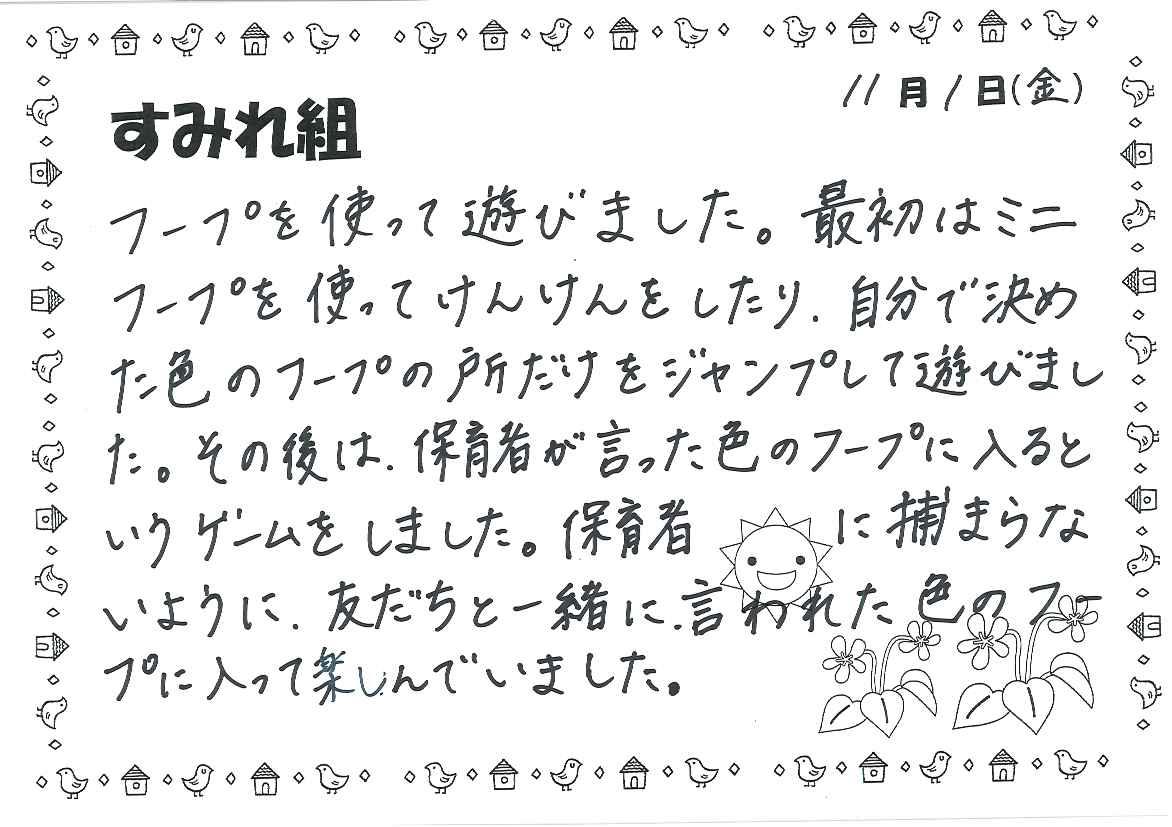 11月1日(金)
すみれ組
フープを使って遊びました。最初はミニ
フープを使ってけんけんをしたり、自分で決め
た色のフープの所だけをジャンプして遊びまし
た。その後は、保育者が言った色のフープに入ると
いうゲームをしました。保育者に捕まらな
いように、友だちと一緒に、言われた色のフー
プに入って楽しんでいました。